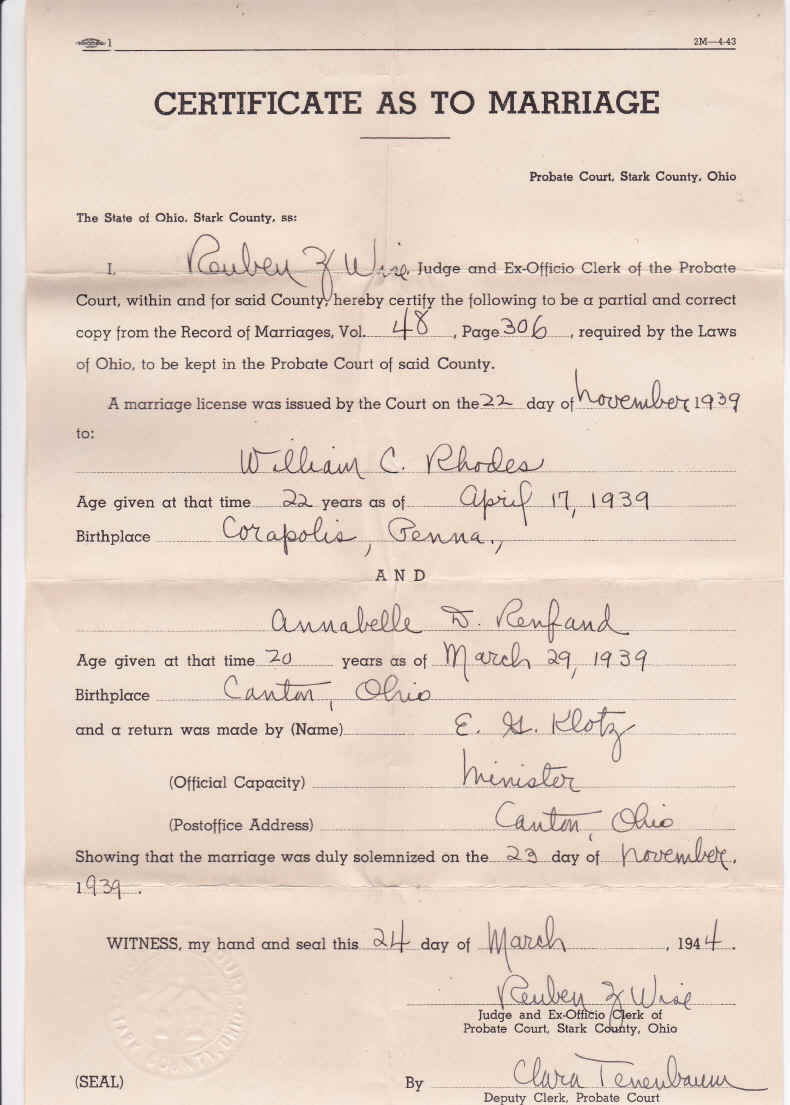 1 2M—4-43
CERTIFICATE AS TO MARRIAGE
Probate Court, Stark County, Ohio
The State of Ohio, Stark County, ss:
I, Reuben Z Wise, Judge and Ex-Officio Clerk of the Probate
Court, within and for said County, hereby certify the following to be a partial and correct
copy from the Record of Marriages, Vol. 48, Page 306, required by the Laws
of Ohio, to be kept in the Probate Court of said County.
A marriage license was issued by the Court on the 22 day of November 1939
to:
William C. Rhodes
Age given at that time 22 years as of April 17, 1939
Birthplace Corapolis, Penna.,
AND
Annabelle D. Renfand
Age given at that time 20 years as of March 29, 1939
Birthplace Canton, Ohio
and a return was made by (Name) E. G. Klotz
(Official Capacity) Minister
(Postoffice Address) Canton, Ohio
Showing that the marriage was duly solemnized on the 23 day of November,
1939.
WITNESS, my hand and seal this 24 day of March, 1944.
Reuben Z Wise
Judge and Ex-Officio Clerk of
Probate Court, Stark County, Ohio
(SEAL) By Clara Tenenbaum
Deputy Clerk, Probate Court